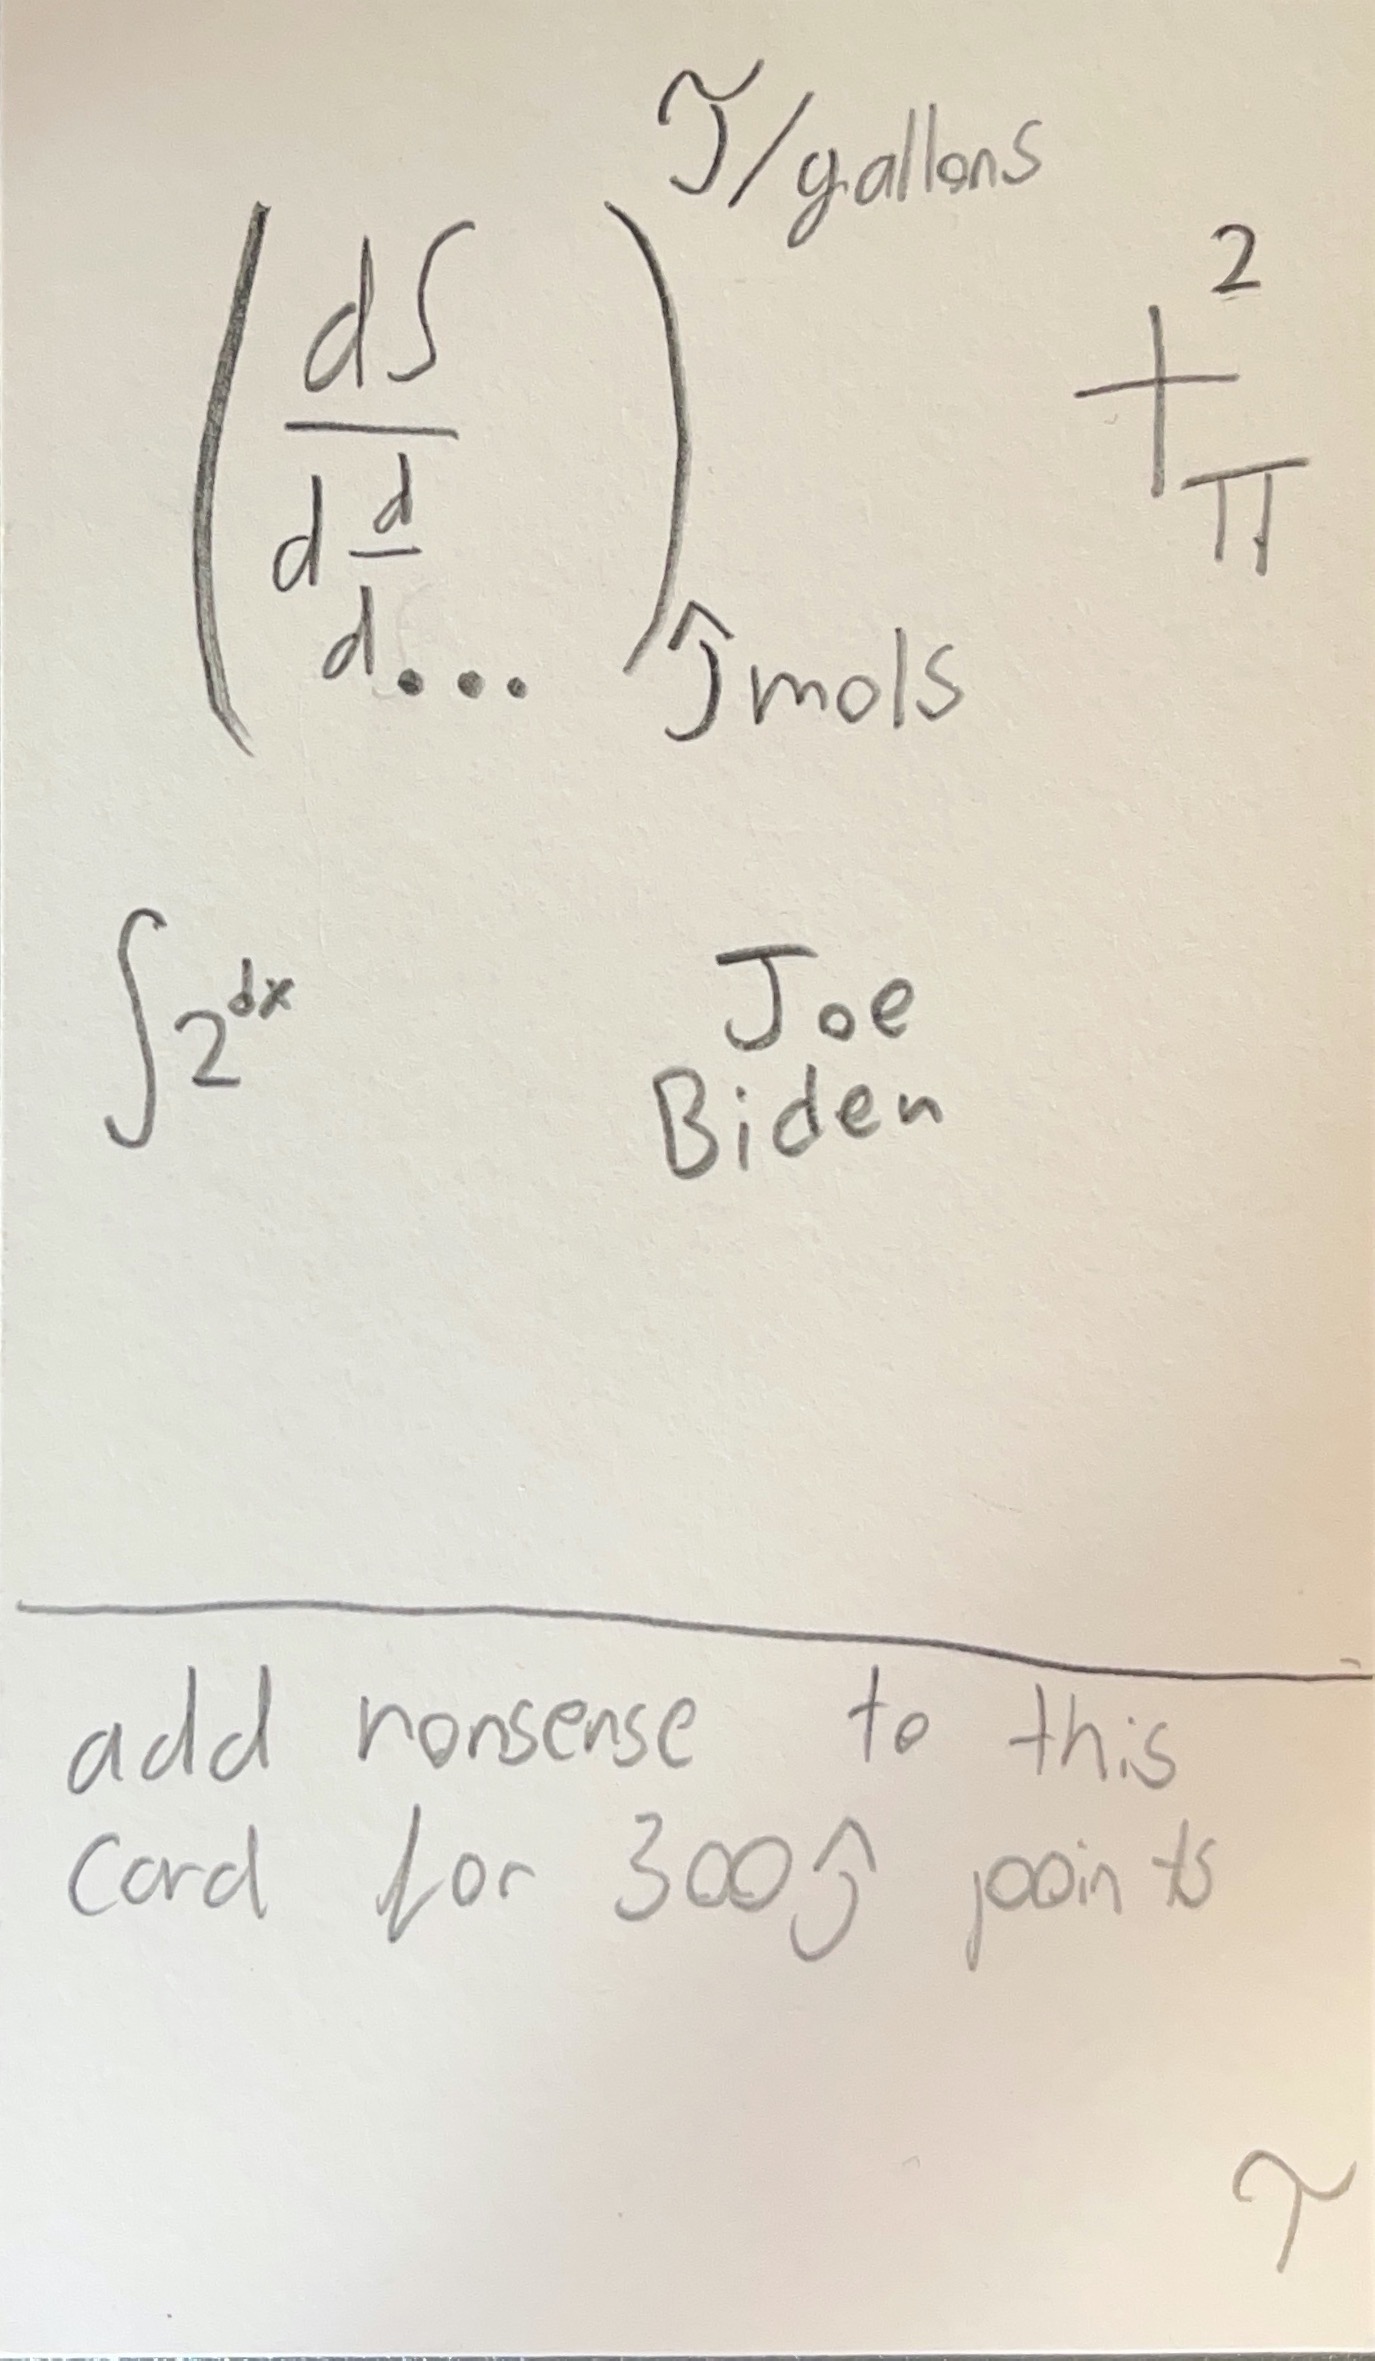 (d∫ / d d/d...) J̃/gallons ĵmols
+ 2 π
∫2^dx
Joe
Biden
add nonsense to this
card for 300ĵ points
τ